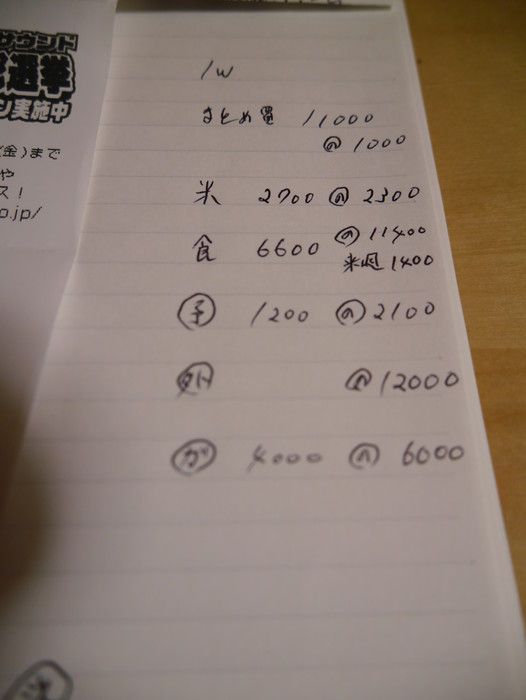 サウンド
選挙
ン実施中
(金)まで
や
ス！
o.jp/
1w
まとめ買 11000
@ 1000
米 2700 @ 2300
食 6600 @ 11400
米週 1400
予 1200 @ 2100
外 @ 12000
ガ 4000 @ 6000